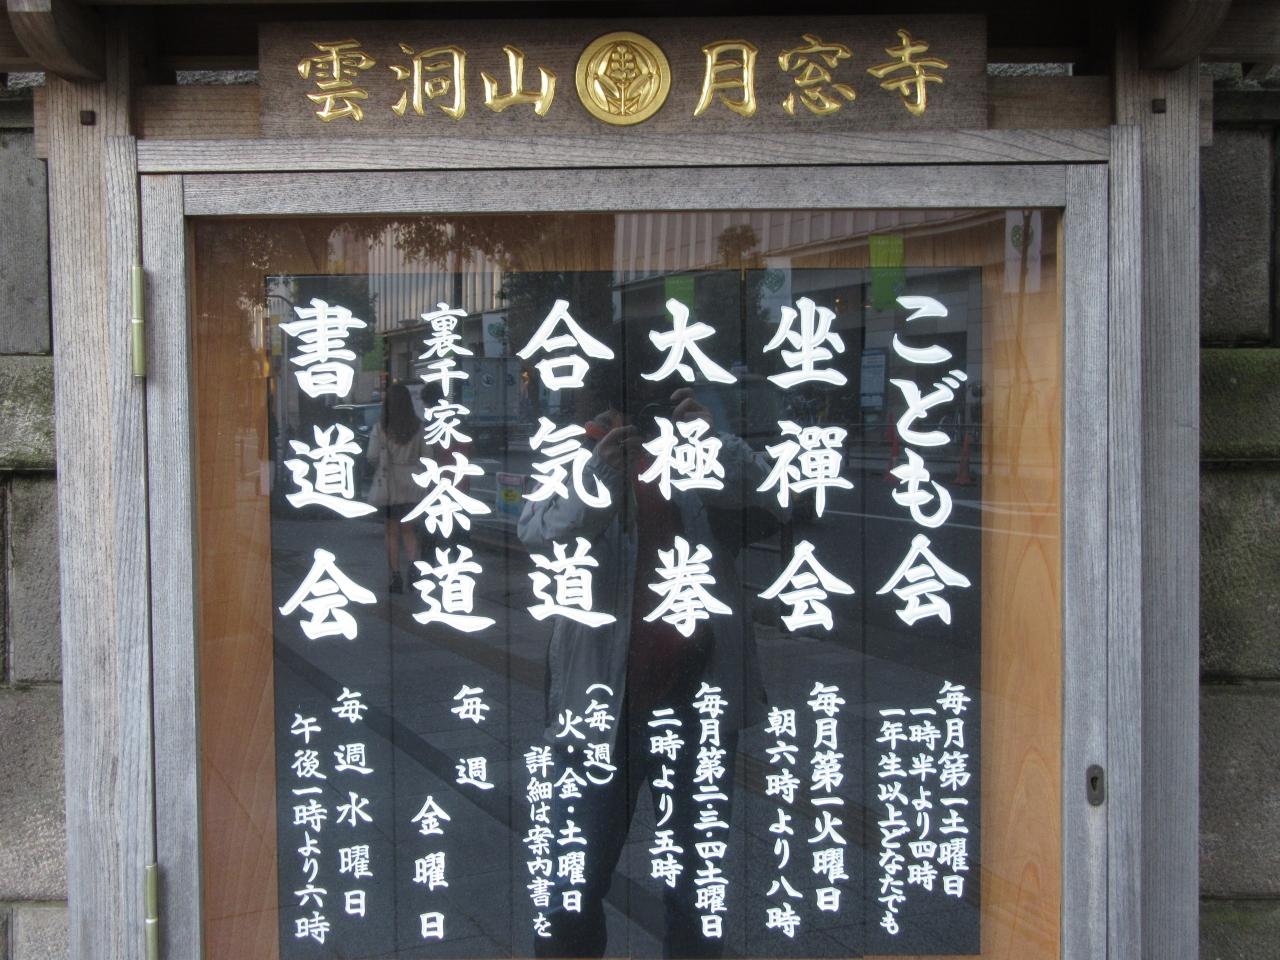 雲洞山 月窓寺
こども会
毎月第一土曜日
一時半より四時
一年生以上どなたでも
坐禪会
毎月第一火曜日
朝六時より八時
太極拳
毎月第二・三・四土曜日
二時より五時
合気道
(毎週)
火・金・土曜日
詳細は案内書を
裏千家茶道
毎週
金曜日
書道会
毎週水曜日
午後一時より六時